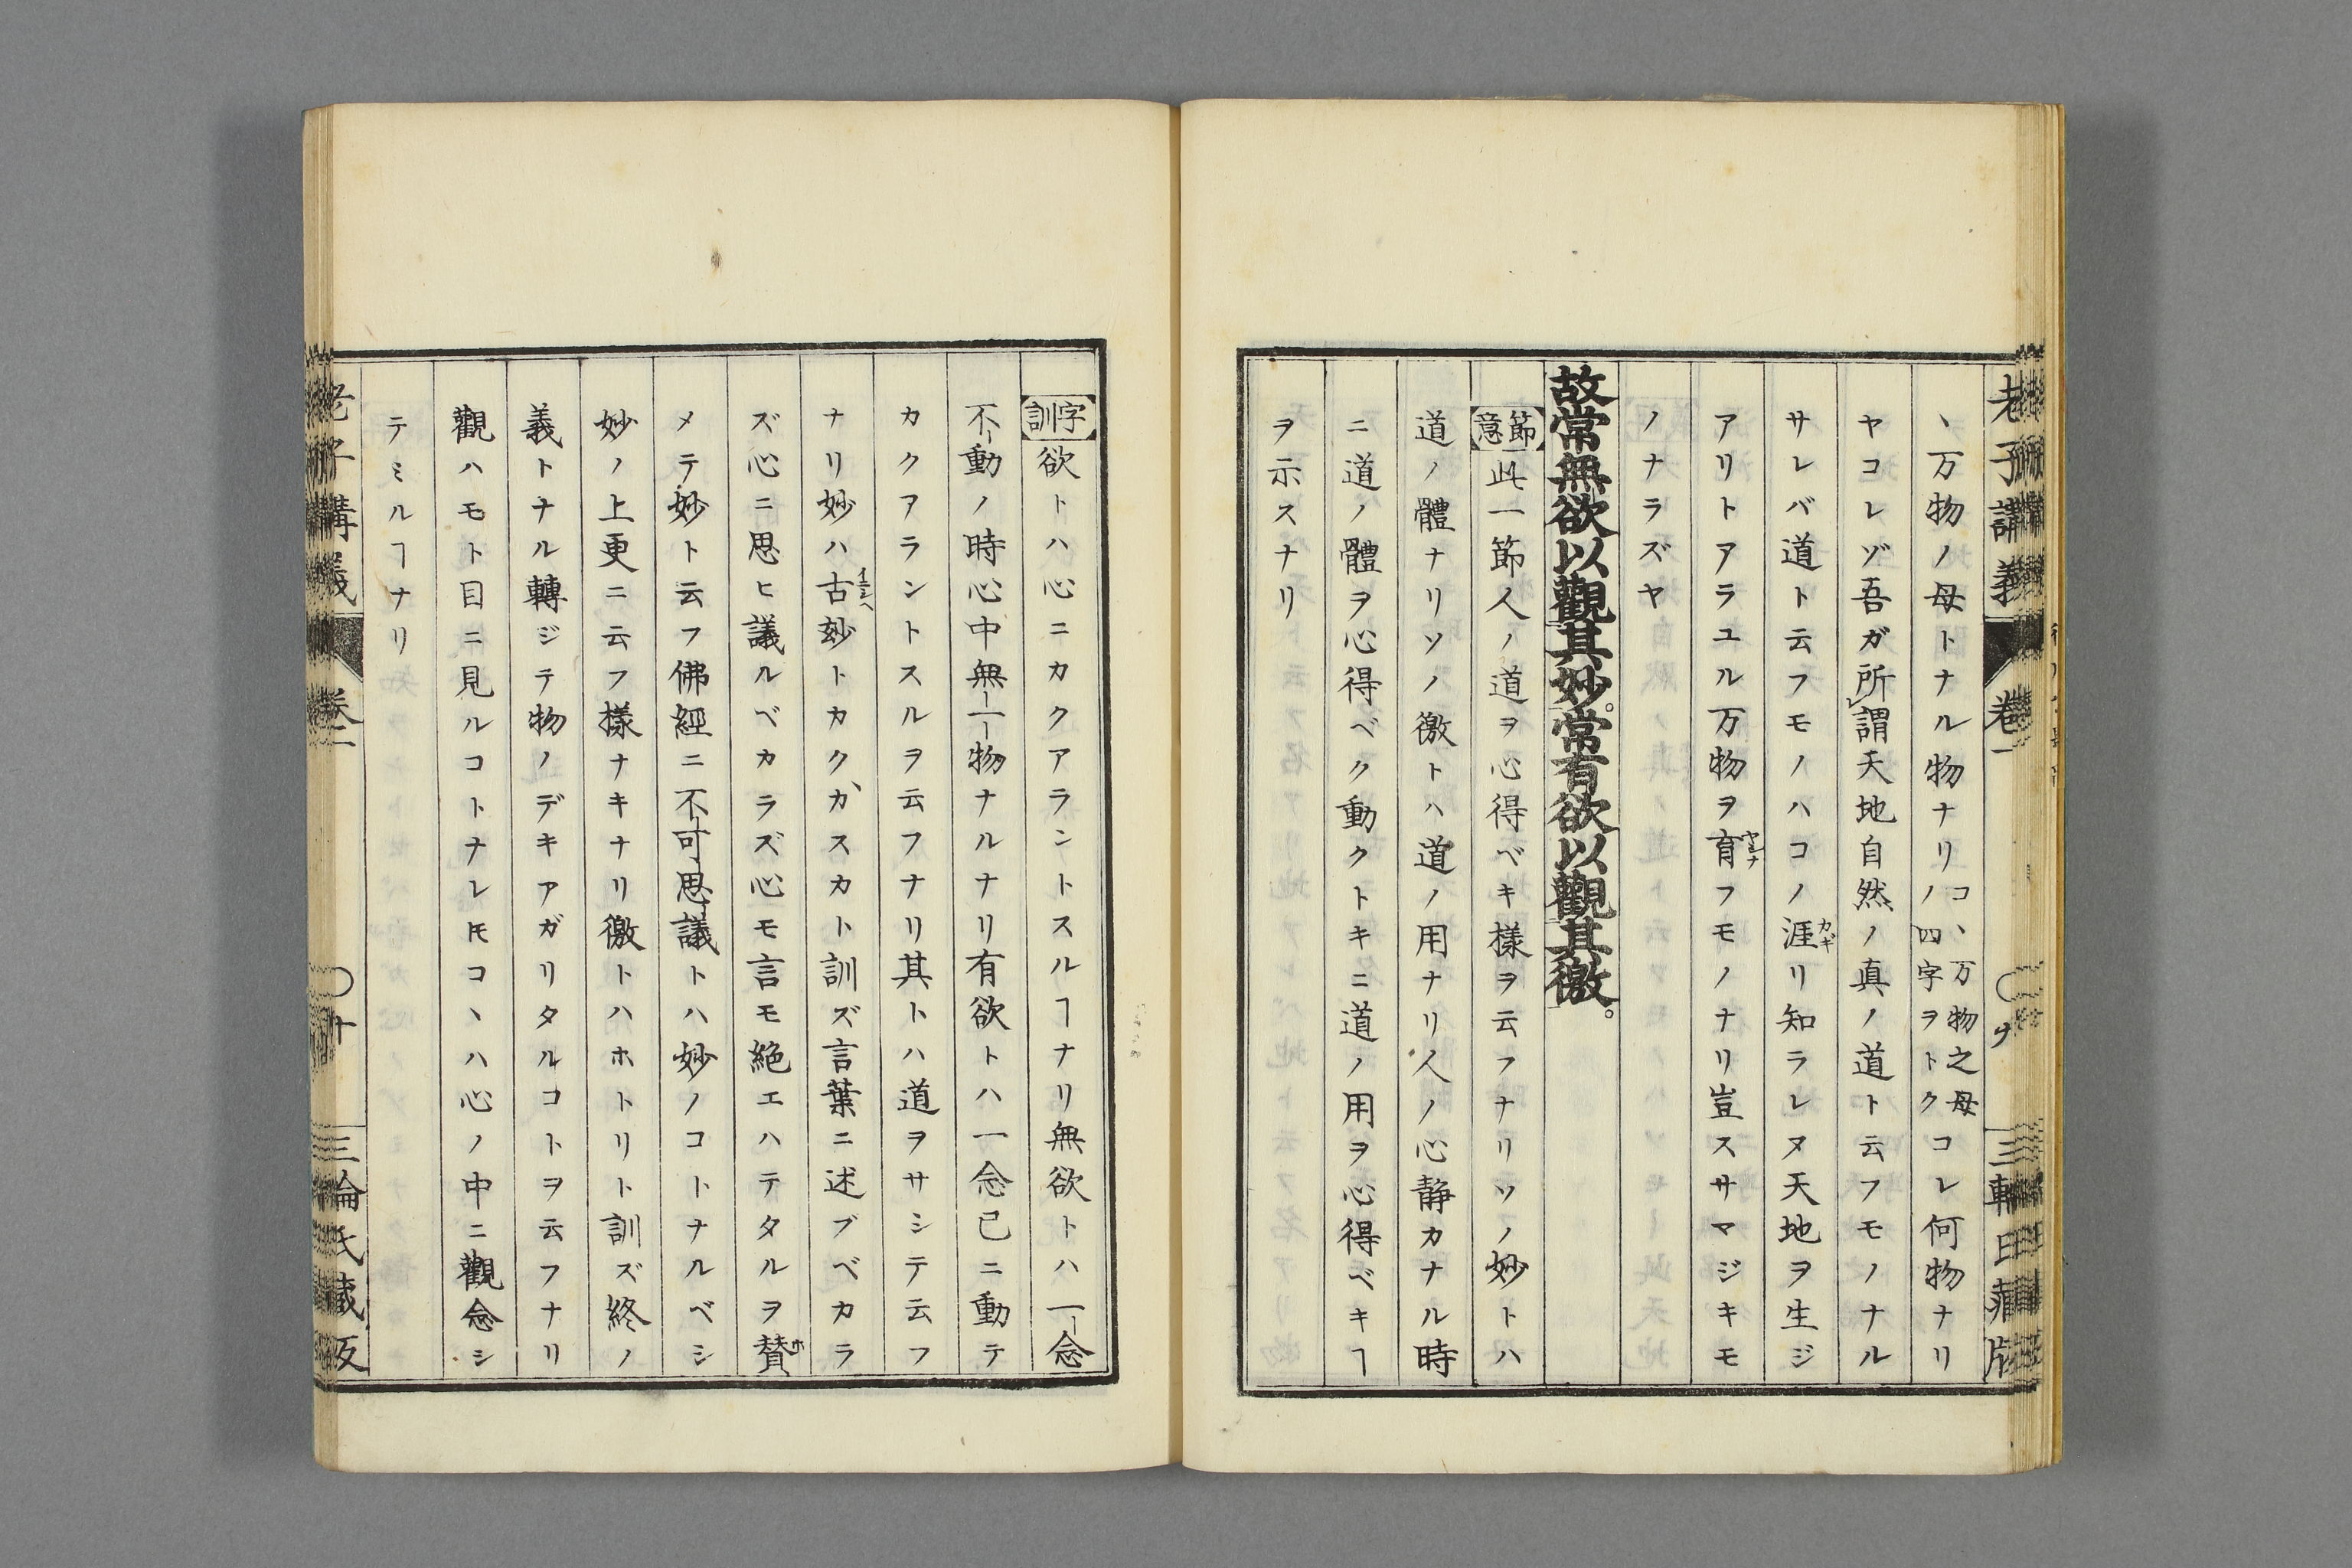 老子講義 卷一
、万物ノ母トナル物ナリコ、万物之母ノ四字ヲトクコレ何物ナリ
ヤコレゾ吾ガ所謂天地自然ノ真ノ道ト云フモノナル
サレバ道ト云フモノハコノ涯リ知ラレヌ天地ヲ生ジ
アリトアラユル万物ヲ育フモノナリ豈スサマジキモ
ノナラズヤ
故常無欲以觀其妙。常有欲以觀其徼。
節意 此一節人ノ道ヲ心得ベキ樣ヲ云フナリソノ妙トハ
道ノ體ナリソノ徼トハ道ノ用ナリ人ノ心静カナル時
ニ道ノ體ヲ心得ベク動クトキニ道ノ用ヲ心得ベキヿ
ヲ示スナリ
字訓 欲トハ心ニカクアラントスルヿナリ無欲トハ一念
不動ノ時心中無一物ナルナリ有欲トハ一念已ニ動テ
カクアラントスルヲ云フナリ其トハ道ヲサシテ云フ
ナリ妙ハ古玅トカク、カスカト訓ズ言葉ニ述ブベカラ
ズ心ニ思ヒ議ルベカラズ心モ言モ絶エハテタルヲ賛
メテ妙ト云フ佛經ニ不可思議トハ妙ノコトナルベシ
妙ノ上更ニ云フ樣ナキナリ徼トハホトリト訓ズ終ノ
義トナル轉ジテ物ノデキアガリタルコトヲ云フナリ
觀ハモト目ニ見ルコトナレ𪜈コヽハ心ノ中ニ觀念シ
テミルヿナリ
老子講義 卷一 十 三輪氏藏版